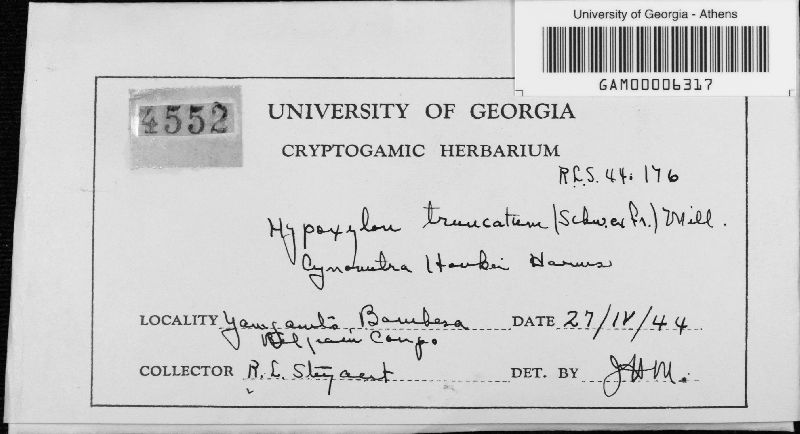 University of Georgia - Athens
GAM00006317
4552
UNIVERSITY OF GEORGIA
CRYPTOGAMIC HERBARIUM
R.L.S. 44. 176
Hypoxylon truncatum (Schw. ex Fr.) Mill.
Cynometra Hankei Harms
LOCALITY Yangambi Bambesa
Belgian Congo
DATE 27/IV/44
COLLECTOR R. L. Steyaert
DET. BY JHM.